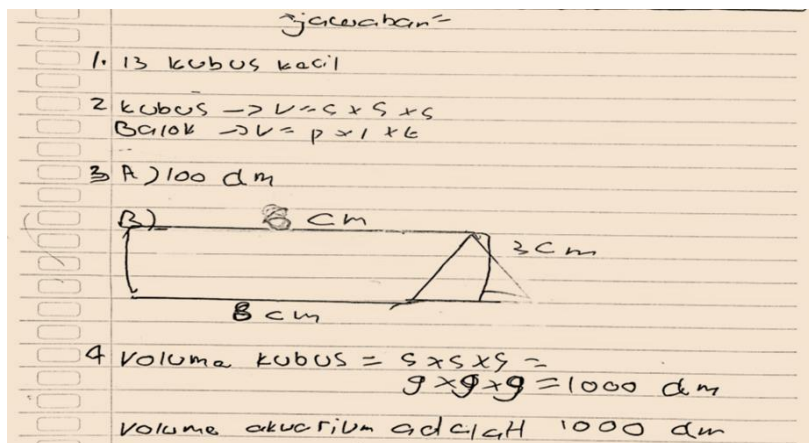 jawaban=
1. 13 kubus kecil
2 kubus -> V = s x s x s
Balok -> V = p x l x t
3 A) 100 dm
B) 8 cm
3 cm
8 cm
4 Voluma kubus = s x s x s =
9 x 9 x 9 = 1000 dm
Volume akuarium adalaH 1000 dm